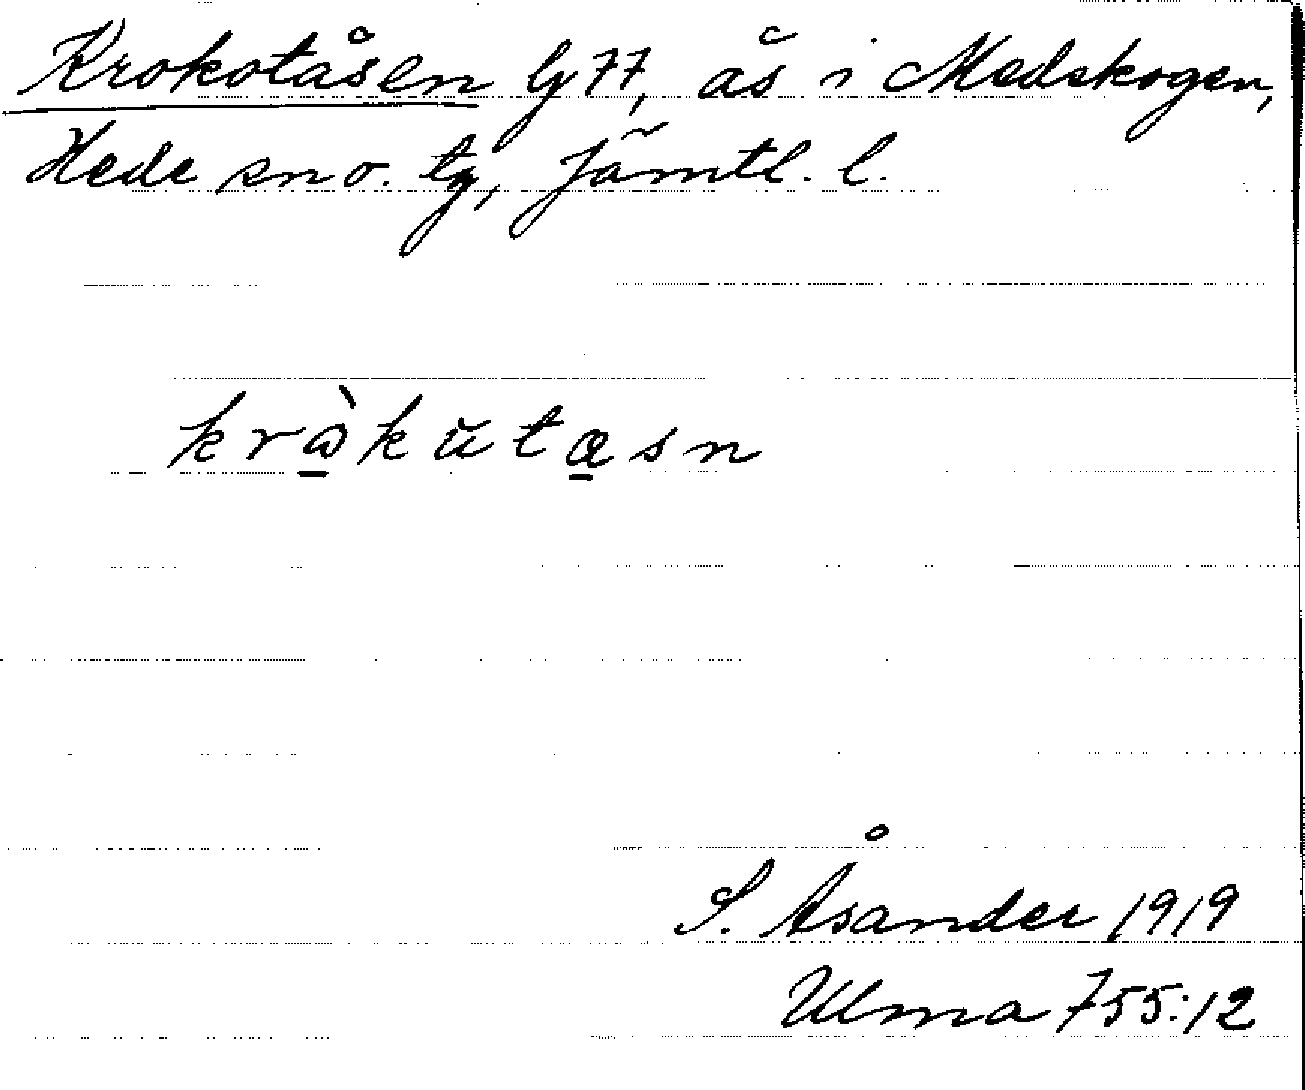 Krokotåsen lj 77, ås i Medskogen,
Hede sn o. tg, Jämtl. l.
kràkŭtasn
S. Åsander 1919
Ulma 755:12